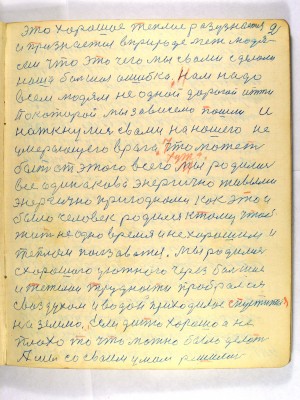 это хорошее теплие раздузнается 2
и признается в природе меж людя-
ми что это чего мы с вами сделали
наша большая ошибка. Нам надо
всем людям не одной дорогой итти
по которой мы зависело пошли и
наткнулися с вами на нашего не
умирающего врага, что может
быть от этого всего хуже. Мы родились
все одинаково энергично живыми
энергично пригодными как это и
было человек родился к тому чтоб
жить не одно время и не хорошим и
теплом ползоватся. Мы родились
с хорошого утотного через большие
и тяжелыи трудности пробрался
с воздухом и водой приходилось спуститься
на землю. Если дитё хорошо а не
плохо то что можно было делать
А мы со своим умом решилой